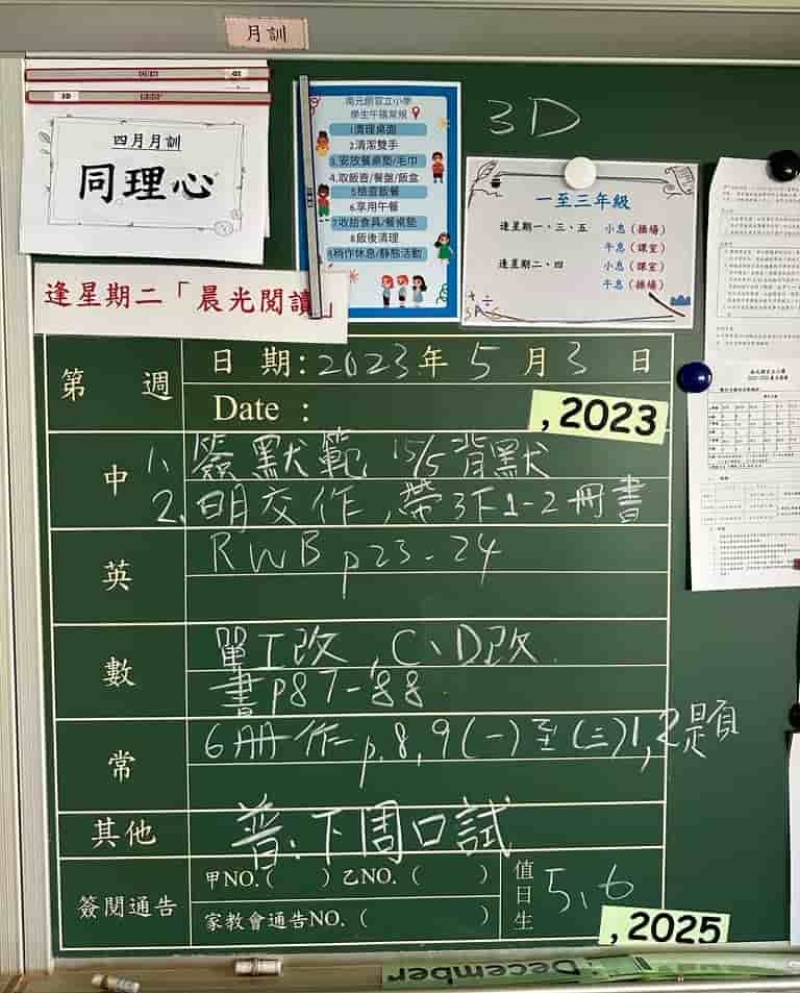 月訓
四月月訓
同理心
學生午膳常規
1清理桌面
2.清潔雙手
3.安放餐桌墊/毛巾
4.取飯壺/餐盤/飯盒
5檢查飯餐
6.享用午餐
7收拾食具/餐桌墊
8飯後清理
9稍作休息/靜態活動
3D
一至三年級
逢星期一、三、五 小息（操場）
午息（課室）
逢星期二、四 小息（課室）
午息（操場）
逢星期二「晨光閱讀」
第 週
日 期:2023年 5 月 3 日
Date :
,2023
中
1、簽默範 15/5背默
2、明交作,帶3下1-2冊書
英
RWB p23-24
數
單工改,C、D改
書p87-88
常
6冊作p.8,9(一)至(三)1,2題
其他
普:下周口試
簽閱通告
甲NO.( ) 乙NO. ( )
家教會通告NO. ( )
值日生
5、6
,2025
December